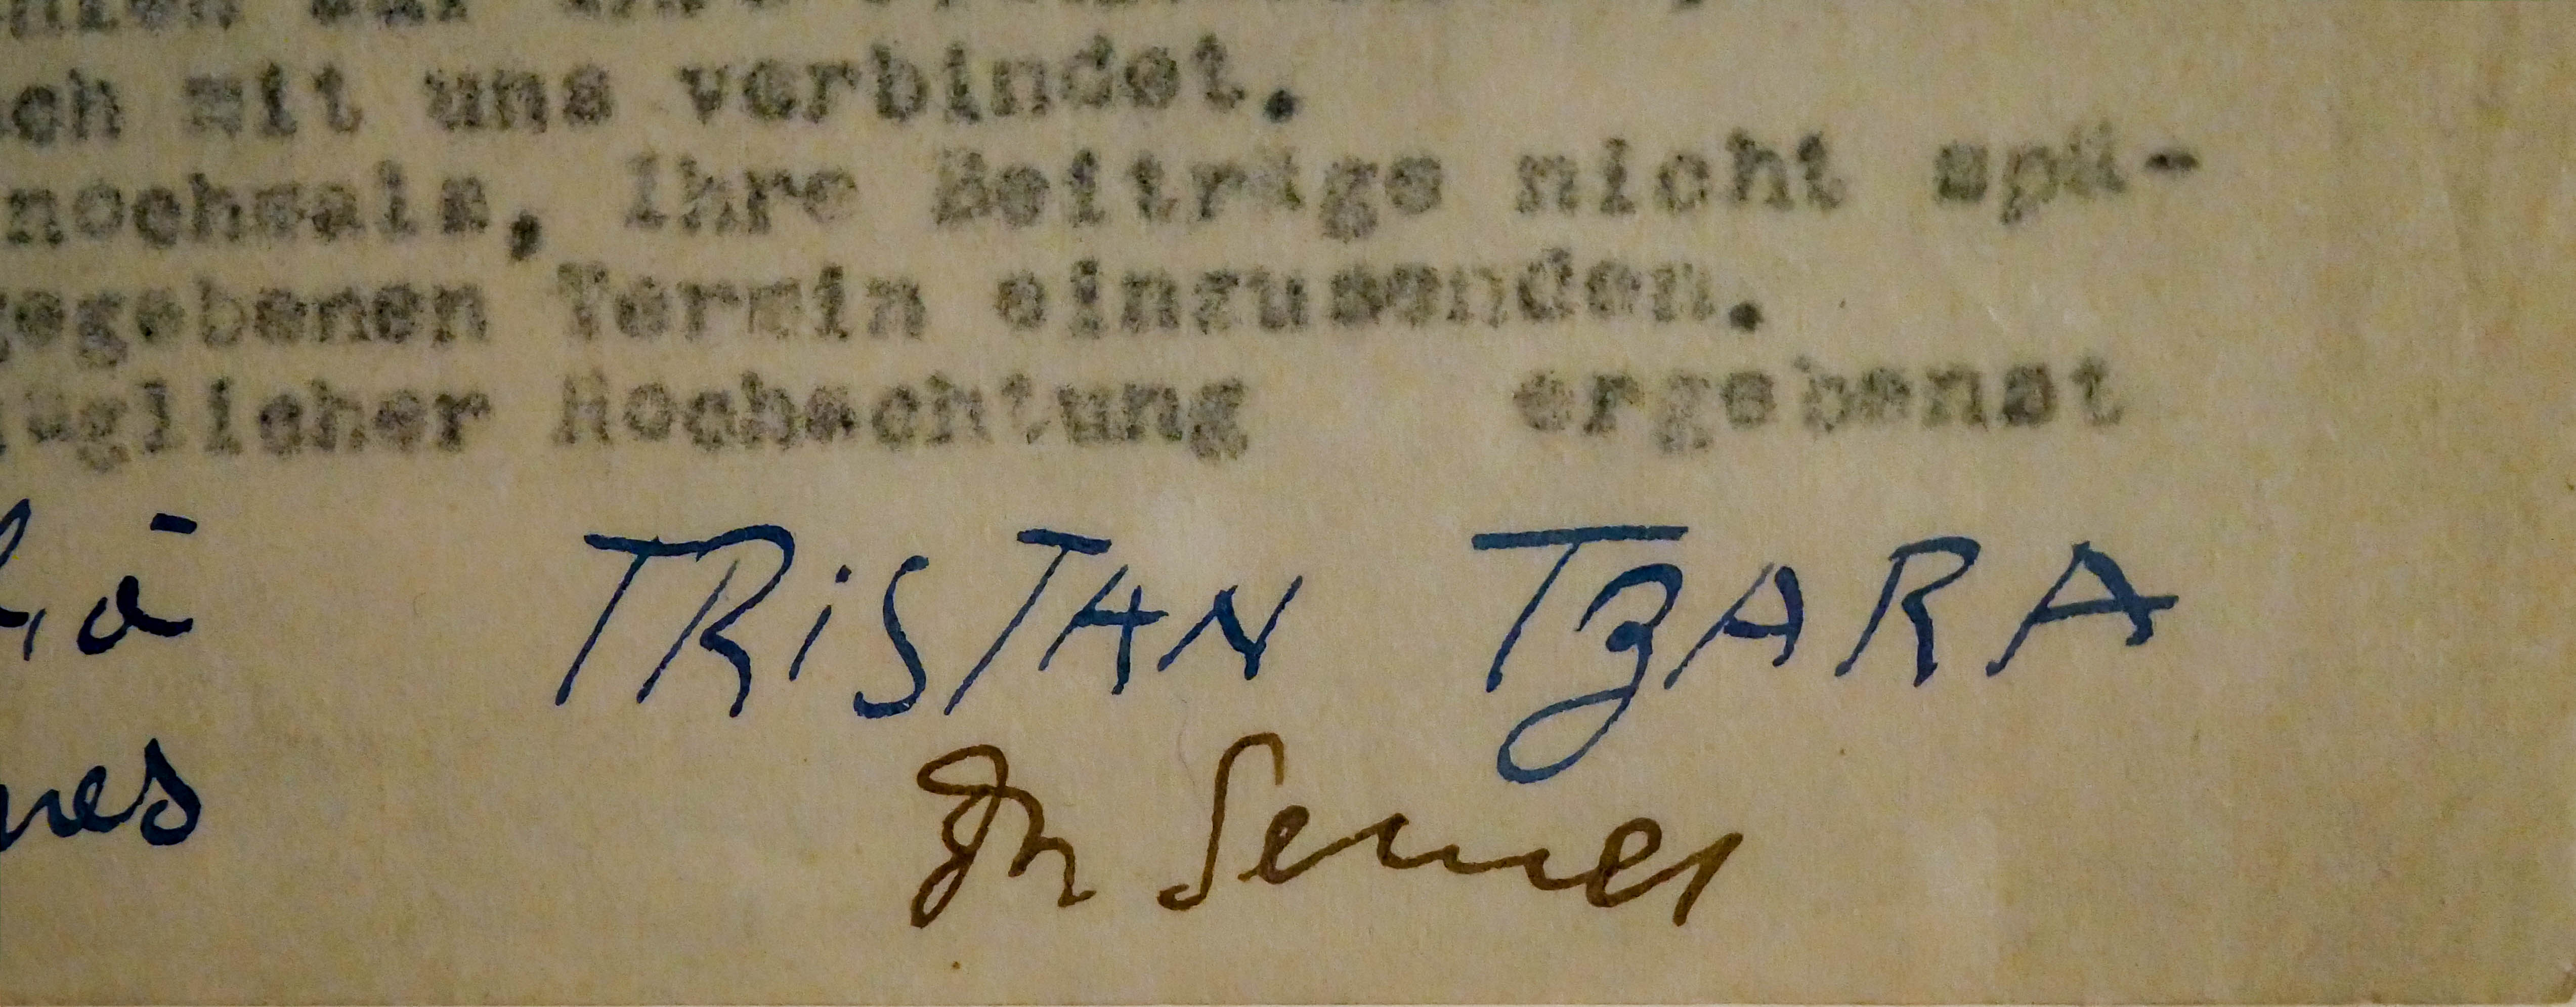 ch mit uns verbindet.
nochmals, Ihre Beiträge nicht spä-
gegebenen Termin einzusenden.
züglicher Hochachtung ergebenst
TRiSTAN TZARA
Dr Serner